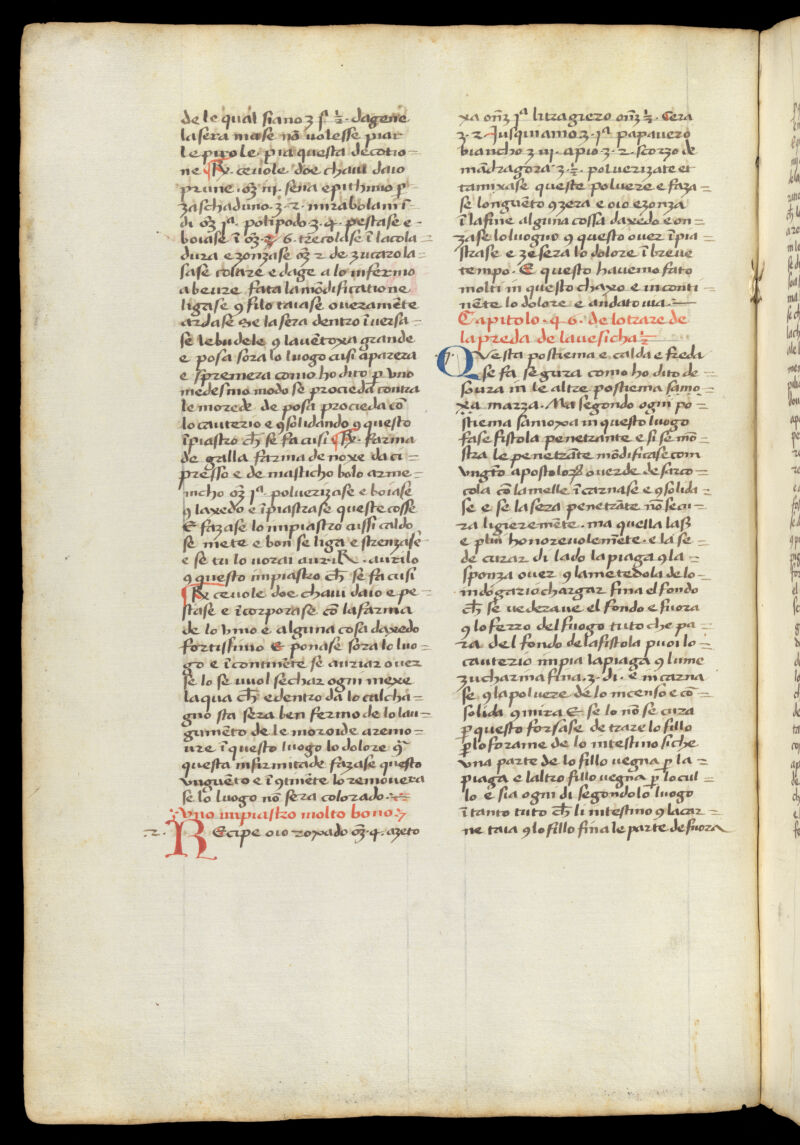 de le qual siano ʒ jª ½ · dagene
la sera mese nõ uolesse piar
le pirole pia questa decotio-
ne ¶ ℞ · ceuole doe chaui daio
prune · oʒ̃ iij · sena epithimo p̃
zaschaduno · ʒ · 2 · mirabolani ĩ
di oʒ̃ jª · polipodo ʒ · 4 · pestase e -
boiase ĩ oʒ̃ · 6 · trecolase ĩ la cola
dura e zonzase oʒ̃ 2 de zucaro la-
sase colare e dage a lo infermo
a beuere fata la mõdificatione
ligase ꝯ filo taiase oueramẽte
ardase se la sera dentro ĩuersa-
se le budele ꝯ la uẽtoxa grande
e posa sora lo luogo cusi aparera
e spremera como ho dito p̱ vno
medesimo modo se procieda contra
le morede de posa procieda cõ
lo cauterio e ꝯsolidando ꝯ questo
ĩpiastro ch̃ se fa cusi ¶ ℞ · farina
de galla farina de noxe da ci-
presso e de masticho bolo arme-
nicho oʒ̃ jª poluerizase e boiase
ꝯ laxedo e ĩpiastrase queste cosse
E fazase lo inpiastro cussi caldo
se mete e bon se liga e strenzase
e se tu lo vorai auriR · aurilo
ꝯ questo inpiastro ch̃ se fa cusi
¶ ℞ ceuole doe chaui daio e pe-
stase e ĩcorporase cõ la farina
de lo lino e alguna cosa daxedo
fortissimo E ponase sora lo luo-
go e ĩcontinẽte se auriar ouer
se lo se uuol sechar ogni mexe
laqua ch̃ e dentro da lo calcha-
gno sta sera ben fermo de lo lau-
gumẽto de le moroide aremo-
ure ĩ questo luogo lo dolore ꝯª
questa infirmitade fazase questo
vnguẽto e ĩ ꝯtinẽte lo remouera
se lo luogo nõ sera colorado ·
Vno inpiastro molto bono ·
2 · REcipe oio roxado oʒ̃ · 4 · azeto
xa onʒ̃ jª litragiero onʒ̃ ½ · Cera
ʒ · 2 · Jusquiamo ʒ · jª papauero
biancho ʒ iij · apio ʒ · 2 · scorzo de
mãdragora ʒ · ½ · poluerizate et
tamixase queste poluere e faza-
se lo nguẽto ꝯ zera e oio e zonza
ĩ la fine alguna cossa daxedo e on-
zase lo luogho ꝯ questo ouer ĩpia-
strase e zesera lo dolore ĩ breue
tempo · E questo hauemo fato
molti in questo chaxo e inconti-
nẽte lo dolore e andato uia ·
Capitolo · 46 · de lo trare de
la preda de la uesicha
QVesta postiema e calda e freda
se fa segura como ho dito de
soura in le altre postiema samo-
xa marza · Ma segondo ogni po-
stiema samoxa in questo luogo
fase fistola penetrante e si se mo-
stra le penetrãte mõdificase com
vngtõ apostoloꝝ ouer de de sarco-
cola cõ la melle ĩ carnase e ꝯsolida-
se e se la sera penetrãte nõ se cu-
ra ligieremẽte · ma quella lass̃
e plui honoreuolemẽte · e la se
de curar di lado la piaga ꝯ la
sponza ouer ꝯ la medola de lo
indogario chargar fina el fondo
ch̃ se uederaue el fondo e fuora
ꝯ lo ferro del fuogo tuto che pa-
ra del fondo dela fistola puoi lo
cauterio inpia la piaga ꝯ lume
zucharina fina · 3 · di · e incarna
se ꝯ la poluere de lo incenso e cõ-
solida ꝯ mira E se lo nõ se cura
p̱ questo forsase de trare lo fillo
p̱ lo forame de lo intestino siche
vna parte de lo fillo uegna p̱ la-
piaga e laltro fillo uegna p̱ lo cul-
lo e sia ogni di segondo lo luogo
ĩtanto tuto ch̃ li intestino ꝯ la car-
ne taia ꝯ lo fillo fina le parte de fuora